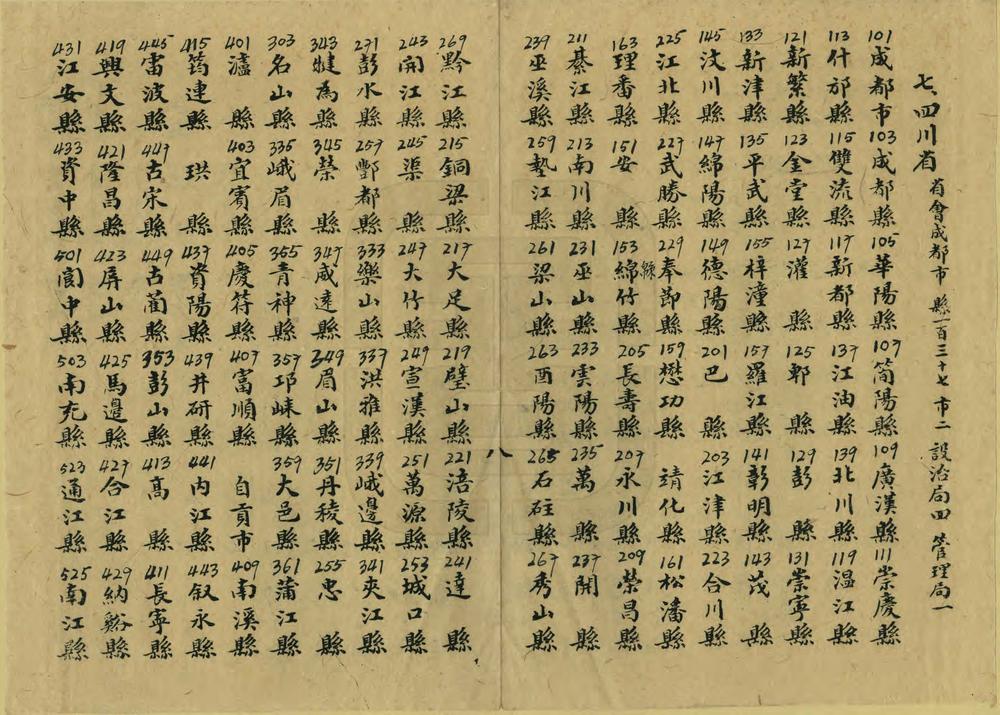 七、四川省 省會成都市 縣一百三十七 市二 設治局四 管理局一
101成都市 103成都縣 105華陽縣 107簡陽縣 109廣漢縣 111崇慶縣
113什邡縣 115雙流縣 117新都縣 137江油縣 139北川縣 119溫江縣
121新繁縣 123金堂縣 127灌縣 125郫縣 129彭縣 131崇寧縣
133新津縣 135平武縣 155梓潼縣 157羅江縣 141彰明縣 143茂縣
145汶川縣 147綿陽縣 149德陽縣 201巴縣 203江津縣 223合川縣
225江北縣 227武勝縣 229奉節縣 159懋功縣 靖化縣 161松潘縣
163理番縣 151安縣 153綿竹縣 205長壽縣 207永川縣 209榮昌縣
211綦江縣 213南川縣 231巫山縣 233雲陽縣 235萬縣 237開縣
239巫溪縣 259墊江縣 261梁山縣 263酉陽縣 265石砫縣 267秀山縣
八
269黔江縣 215銅梁縣 217大足縣 219璧山縣 221涪陵縣 241達縣
243開江縣 245渠縣 247大竹縣 249宣漢縣 251萬源縣 253城口縣
271彭水縣 257酆都縣 333樂山縣 337洪雅縣 339峨邊縣 341夾江縣
343犍為縣 345榮縣 347威遠縣 349眉山縣 351丹稜縣 255忠縣
303名山縣 335峨眉縣 355青神縣 357邛崍縣 359大邑縣 361蒲江縣
401瀘縣 403宜賓縣 405慶符縣 407富順縣 自貢市 409南溪縣
415筠連縣 珙縣 437資陽縣 439井研縣 441內江縣 443叙永縣
445雷波縣 447古宋縣 449古藺縣 353彭山縣 413高縣 411長寧縣
419興文縣 421隆昌縣 423屏山縣 425馬邊縣 427合江縣 429納谿縣
431江安縣 433資中縣 501閬中縣 503南充縣 523通江縣 525南江縣